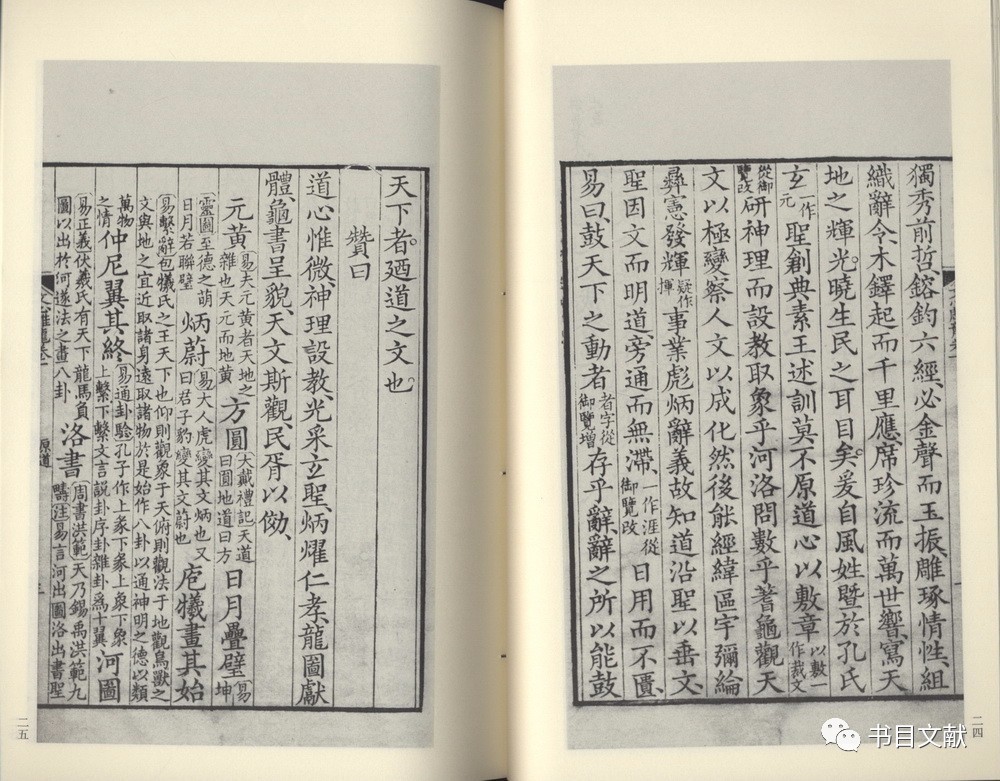 獨秀前哲鎔鈞六經必金聲而玉振雕琢情性組
織辭令木鐸起而千里應席珍流而萬世響寫天
地之輝光曉生民之耳目矣爰自風姓暨於孔氏
玄一作元聖創典素王述訓莫不原道心以敷章以敷一作裁文
從御覽改研神理而設教取象乎河洛問數乎蓍龜觀天
文以極變察人文以成化然後能經緯區宇彌綸
彝憲發輝疑作揮事業彪炳辭義故知道沿聖以垂文
聖因文而明道旁通而無滯一作涯從御覽改日用而不匱
易曰鼓天下之動者者字從御覽增存乎辭辭之所以能鼓
二四
天下者廼道之文也
贊曰
道心惟微神理設教光采玄聖炳燿仁孝龍圖獻
體龜書呈貌天文斯觀民胥以傚
元黃易夫元黃者天地之雜也天元而地黃方圓大戴禮記天道曰圓地道曰方日月疊璧易坤
靈圖至德之萌日月若聯璧炳蔚易大人虎變其文炳也又曰君子豹變其文蔚也庖犧畫其始
易繫辭包犧氏之王天下也仰則觀象于天俯則觀法于地觀鳥獸之文與地之宜近取諸身遠取諸物於是始作八卦以通神明之德以類
萬物之情仲尼翼其終易通卦驗孔子作上彖下彖上象下象上繫下繫文言說卦序卦雜卦為十翼河圖
易正義伏羲氏有天下龍馬負圖以出於河遂法之畫八卦洛書周書洪範天乃錫禹洪範九疇注易言河出圖洛出書聖
文心雕龍卷一
原道
三
二五
书目文献